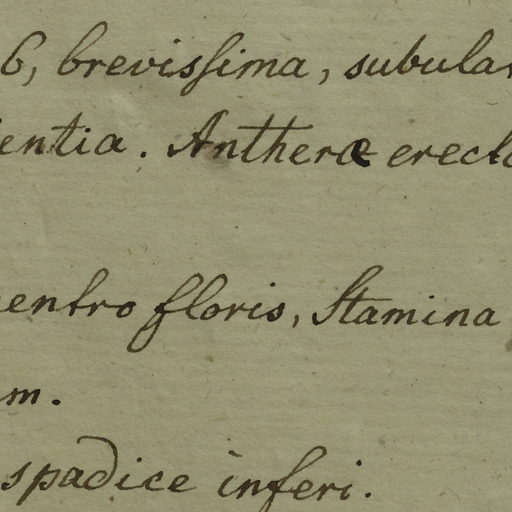 6, brevissima, subular
entia. Antheræ erecta
entro floris, Stamina
m.
spadice inferi.